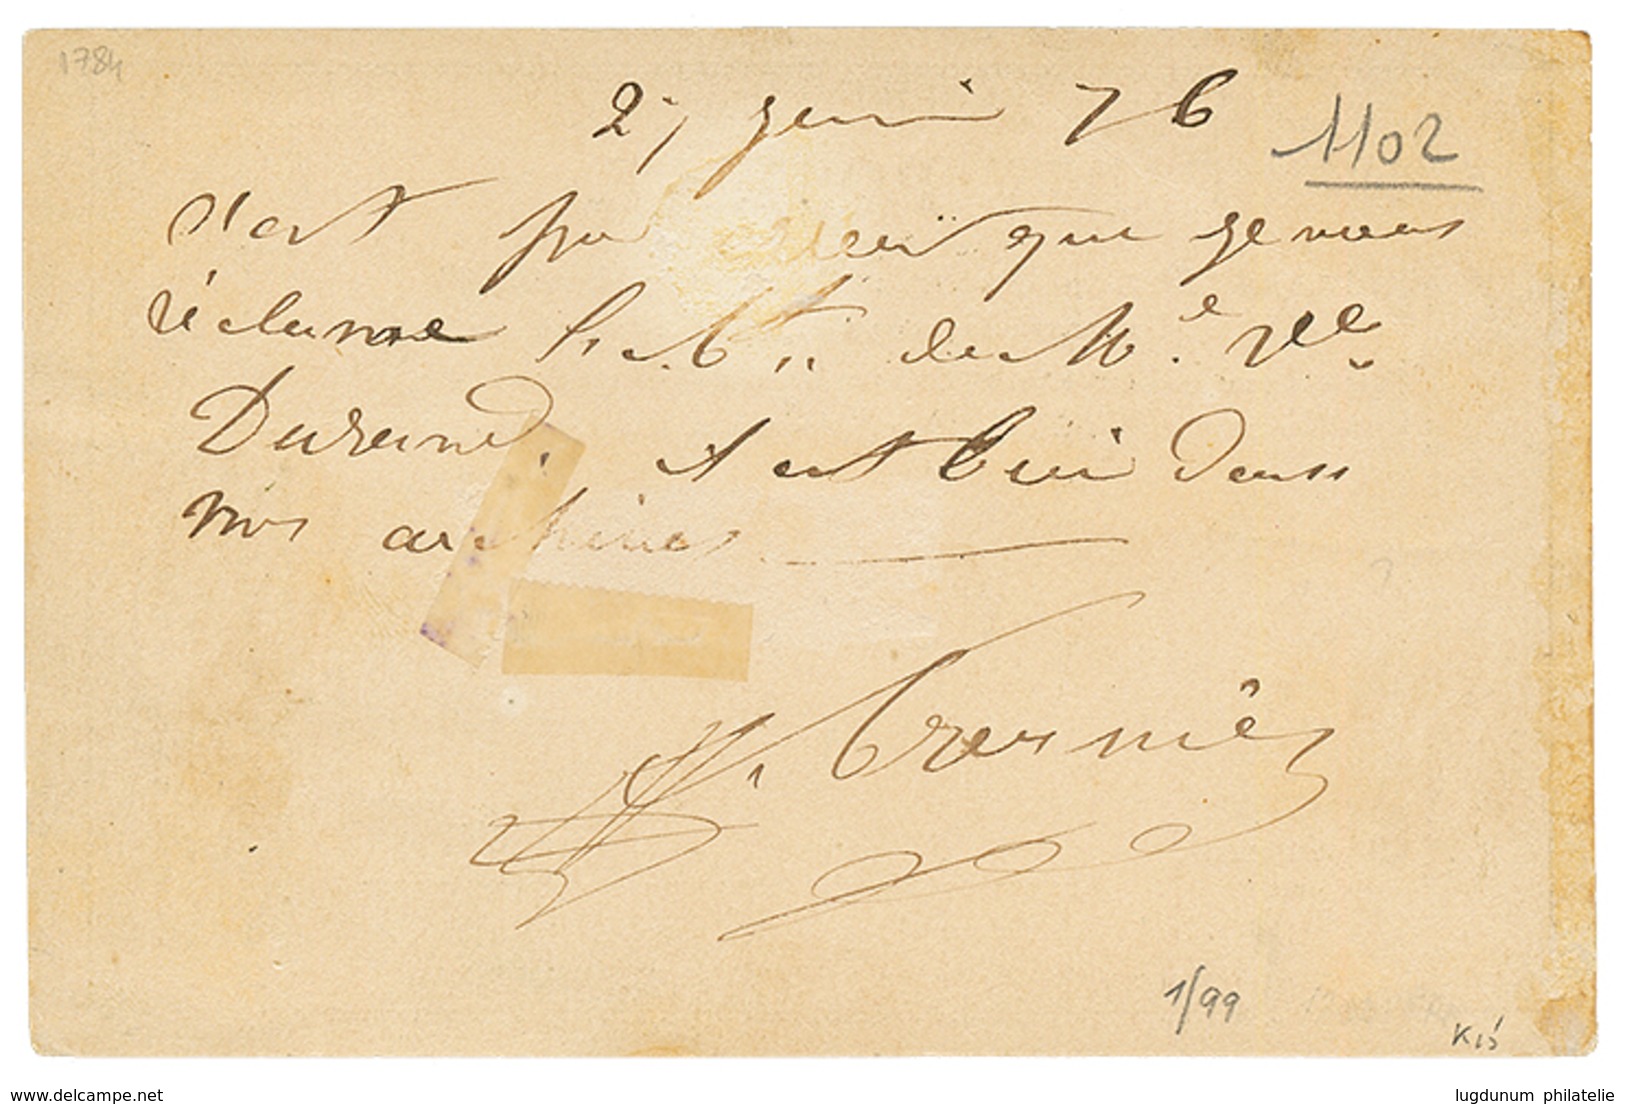 1784
27 janvier 76
1102
c'est par erreur que je vous
réclame de Mme Vve
Durand, il est bien dans
nos archives.
1/99
K15
delcampe.net
lugdunum philatelie